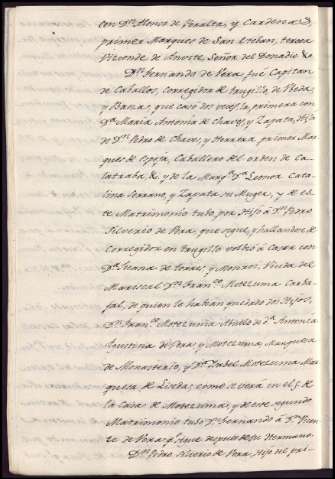 con Dn. Alonso de Peralta, y Cardenas,
primer Marques de San Esteban, tercer
Vizconde de Señor del Donadio &a
Dn. Fernando de Pera fue Capitan
de Caballos, corregidor de trugillo, de Ubeda,
y Baeza, que casó dos veces, la primera con
Da. Maria Antonia de Chaves, y Zapata, Hija
de Dn. Pedro de Chaves, y Herrera primer Mar
ques de Caballero del orden de Ca
latraba &, y de la Marqa. Da. Leonor Cata
lina Serrano, y Zapata su Muger, y de es
te Matrimonio tubo por Hijo á Dn. Pedro
Silverio de Pera que sigue, y hallandose de
Corregidor en trugillo volbió a casar con
Da. Juana de y Monroi, Viuda del
Mariscal Dn. Franco. Motezuma Carba
jal, de quien le habian quedado dos Hijos,
Dn. Franco. Motezuma de Da. Antonia
Agustina de Pera, y Motezuma Marquesa
de Monasterio, y Da. Isabel Motezuma Mar
quesa de como se verá en el § de
la Casa de Motezuma, y de este segundo
Matrimonio tubo Dn. Fernando á Dn. Vicen
te de Pera q. sigue despues de su Hermano.
Dn. Pedro Silverio de Pera, Hijo del pri-